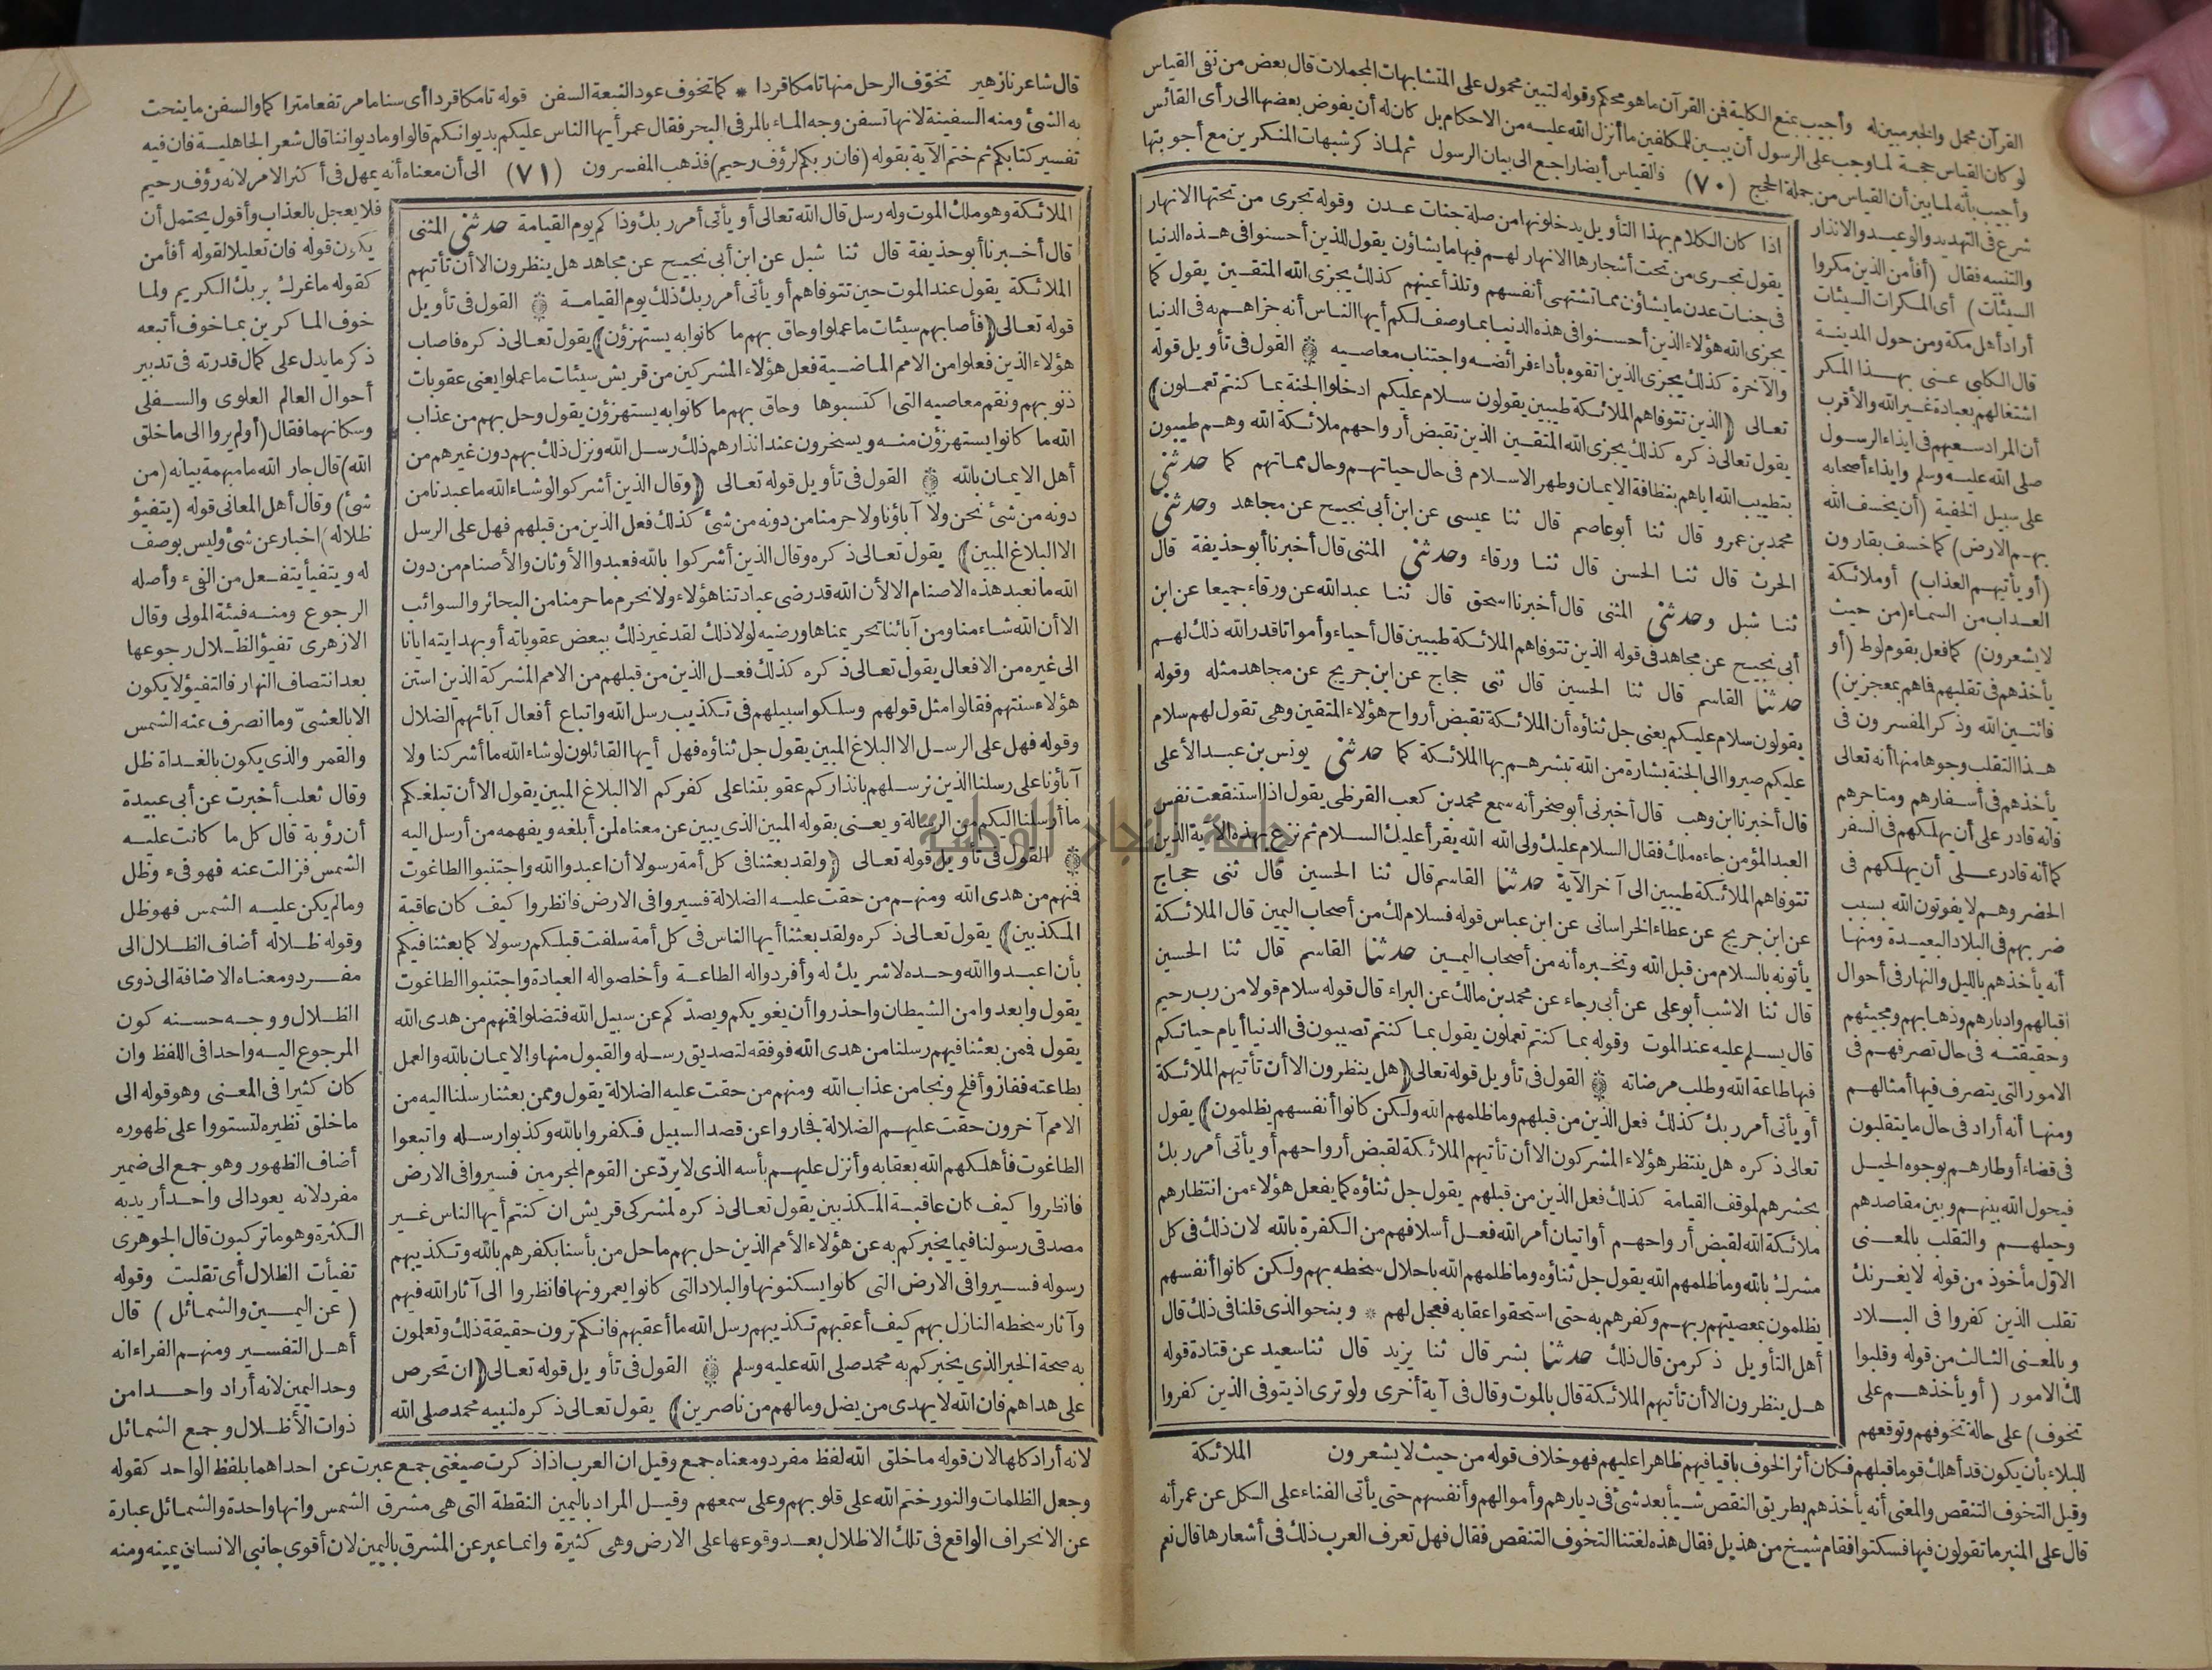 القرآن مجمل والخبر مبين له وأجيب بمنع الكلية فن القرآن ما هو محكم وقوله لتبين محمول على المتشابهات المجملات قال بعض من نفى القياس
لو كان القياس حجة لما وجب على الرسول أن يبين للمكلفين ما أنزل الله عليه من الاحكام بل كان له أن يفوض بعضها الى رأى القائس
وأجيب بأنه لما بين أن القياس من جملة الحجج (٧٠) فالقياس أيضا راجع الى بيان الرسول ثم لما ذكر شبهات المنكرين مع أجوبتها
شرع فى التهديد والوعيد والانذار
والتنبيه فقال (أفأمن الذين مكروا
السيئات) أى المكرات السيئات
أراد أهل مكة ومن حول المدينة
قال الكلبى عنى بهذا المكر
اشتغالهم بعبادة غير الله والأقرب
أن المراد سعيهم فى ايذاء الرسول
صلى الله عليه وسلم وايذاء أصحابه
على سبيل الخفية (أن يخسف الله
بهم الارض) كما خسف بقارون
(أو يأتيهم العذاب) أو ملائكة
العذاب من السماء (من حيث
لا يشعرون) كما فعل بقوم لوط (أو
يأخذهم فى تقلبهم فاهم بمعجزين)
فائتين الله وذكر المفسرون فى
هذا التقلب وجوها منها أنه تعالى
يأخذهم فى أسفارهم ومتاجرهم
فانه قادر على أن يهلكهم فى السفر
كما أنه قادر على أن يهلكهم فى
الحضر وهم لا يفوتون الله بسبب
ضربهم فى البلاد البعيدة ومنها
أنه يأخذهم بالليل والنهار فى أحوال
اقبالهم وادبارهم وذهابهم ومجيئهم
وحقيقته فى حال تصرفهم فى
الامور التى يتصرف فيها أمثالهم
ومنها أنه أراد فى حال ما يتقلبون
فى قضاء أوطارهم بوجوه الحيل
فيحول الله بينهم وبين مقاصدهم
وحيلهم والتقلب بالمعنى
الاول مأخوذ من قوله لا يغرنك
تقلب الذين كفروا فى البلاد
وبالمعنى الثالث من قوله وقلبوا
لك الامور (أو يأخذهم على
تخوف) على حالة تخوفهم وتوقعهم
اذا كان الكلام بهذا التأويل يدخلونها من صلة جنات عدن وقوله تجرى من تحتها الانهار
يقول تجرى من تحت أشجارها الانهار لهم فيها ما يشاؤن يقول للذين أحسنوا فى هذه الدنيا
فى جنات عدن ما يشاؤن مما تشتهى أنفسهم وتلذ أعينهم كذلك يجزى الله المتقين يقول كما
يجزى الله هؤلاء الذين أحسنوا فى هذه الدنيا بما وصف لكم أيها الناس أنه جزاهم به فى الدنيا
والآخرة كذلك يجزى الذين اتقوه بأداء فرائضه واجتناب معاصيه ۞ القول فى تأويل قوله
تعالى (الذين تتوفاهم الملائكة طيبين يقولون سلام عليكم ادخلوا الجنة بما كنتم تعملون)
يقول تعالى ذكره كذلك يجزى الله المتقين الذين تقبض أرواحهم ملائكة الله وهم طيبون
بتطييب الله اياهم بنظافة الايمان وطهر الاسلام فى حال حياتهم وحال مماتهم كما حدثنى
محمد بن عمرو قال ثنا أبو عاصم قال ثنا عيسى عن ابن أبى نجيح عن مجاهد وحدثنى
الحرث قال ثنا الحسن قال ثنا ورقاء وحدثنى المثنى قال أخبرنا أبو حذيفة قال
ثنا شبل وحدثنى المثنى قال أخبرنا اسحق قال ثنا عبد الله عن ورقاء جميعا عن ابن
أبى نجيح عن مجاهد فى قوله الذين تتوفاهم الملائكة طيبين قال أحياء وأمواتا قدر الله ذلك لهم
حدثنا القاسم قال ثنا الحسين قال ثنى حجاج عن ابن جريج عن مجاهد مثله وقوله
يقولون سلام عليكم يعنى جل ثناؤه أن الملائكة تقبض أرواح هؤلاء المتقين وهى تقول لهم سلام
عليكم صيروا الى الجنة بشارة من الله تبشرهم بها الملائكة كما حدثنى يونس بن عبد الأعلى
قال أخبرنا ابن وهب قال أخبرنى أبو صخر أنه سمع محمد بن كعب القرظى يقول اذا استنقعت نفس
العبد المؤمن جاءه ملك فقال السلام عليك ولى الله الله يقرأ عليك السلام ثم نزع بهذه الآية الذين
تتوفاهم الملائكة طيبين الى آخر الآية حدثنا القاسم قال ثنا الحسين قال ثنى حجاج
عن ابن جريج عن عطاء الخراسانى عن ابن عباس قوله فسلام لك من أصحاب اليمين قال الملائكة
يأتونه بالسلام من قبل الله وتخبره أنه من أصحاب اليمين حدثنا القاسم قال ثنا الحسين
قال ثنا الاشب أبو على عن أبى رجاء عن محمد بن مالك عن البراء قال قوله سلام قولا من رب رحيم
قال يسلم عليه عند الموت وقوله بما كنتم تعملون يقول بما كنتم تصيبون فى الدنيا أيام حياتكم
فيها طاعة الله وطلب مرضاته ۞ القول فى تأويل قوله تعالى (هل ينظرون الا أن تأتيهم الملائكة
أو يأتى أمر ربك كذلك فعل الذين من قبلهم وما ظلمهم الله ولكن كانوا أنفسهم يظلمون) يقول
تعالى ذكره هل ينتظر هؤلاء المشركون الا أن تأتيهم الملائكة لقبض أرواحهم أو يأتى أمر ربك
بحشرهم لموقف القيامة كذلك فعل الذين من قبلهم يقول جل ثناؤه كما يفعل هؤلاء من انتظارهم
ملائكة الله لقبض أرواحهم أو اتيان أمر الله فعل أسلافهم من الكفرة بالله لان ذلك فى كل
مشرك بالله وما ظلمهم الله يقول جل ثناؤه وما ظلمهم الله باحلال سخطه بهم ولكن كانوا أنفسهم
يظلمون بمعصيتهم ربهم وكفرهم به حتى استحقوا عقابه فعجل لهم * وبنحو الذى قلنا فى ذلك قال
أهل التأويل ذكر من قال ذلك حدثنا بشر قال ثنا يزيد قال ثنا سعيد عن قتادة قوله
هل ينظرون الا أن تأتيهم الملائكة قال بالموت وقال فى آية أخرى ولو ترى اذ يتوفى الذين كفروا
الملائكة
للبلاء بأن يكون قد أهلك قوما قبلهم فكان أثر الخوف باقيا فيهم ظاهرا عليهم فهو خلاف قوله من حيث لا يشعرون
وقيل التخوف التنقص والمعنى أنه يأخذهم بطريق النقص شيأ بعد شئ فى ديارهم وأموالهم وأنفسهم حتى يأتى الفناء على الكل عن عمر أنه
قال على المنبر ما تقولون فيها فسكتوا فقام شيخ من هذيل فقال هذه لغتنا التخوف التنقص فقال فهل تعرف العرب ذلك فى أشعارها قال نعم
قال شاعرنا زهير تخوف الرحل منها تامكا قردا * كما تخوف عود النبعة السفن قوله تامكا قردا أى سناما مرتفعا متراكما والسفن ما ينحت
به الشئ ومنه السفينة لانها تسفن وجه الماء بالمر فى البحر فقال عمر أيها الناس عليكم بديوانكم قالوا وما ديواننا قال شعر الجاهلية فان فيه
تفسير كتابكم ثم ختم الآية بقوله (فان ربكم لرؤف رحيم) فذهب المفسرون (٧١) الى أن معناه أنه يمهل فى أكثر الامر لانه رؤف رحيم
الملائكة وهو ملك الموت وله رسل قال الله تعالى أو يأتى أمر ربك وذاكم يوم القيامة حدثنى المثنى
قال أخبرنا أبو حذيفة قال ثنا شبل عن ابن أبى نجيح عن مجاهد هل ينظرون الا أن تأتيهم
الملائكة يقول عند الموت حين تتوفاهم أو يأتى أمر ربك ذلك يوم القيامة ۞ القول فى تأويل
قوله تعالى (فأصابهم سيئات ما عملوا وحاق بهم ما كانوا به يستهزؤن) يقول تعالى ذكره فاصاب
هؤلاء الذين فعلوا من الامم الماضية فعل هؤلاء المشركين من قريش سيئات ما عملوا يعنى عقوبات
ذنوبهم ونقم معاصيه التى اكتسبوها وحاق بهم ما كانوا به يستهزؤن يقول وحل بهم من عذاب
الله ما كانوا يستهزؤن منه ويسخرون عند انذارهم ذلك رسل الله ونزل ذلك بهم دون غيرهم من
أهل الايمان بالله ۞ القول فى تأويل قوله تعالى (وقال الذين أشركوا لو شاء الله ما عبدنا من
دونه من شئ نحن ولا آباؤنا ولا حرمنا من دونه من شئ كذلك فعل الذين من قبلهم فهل على الرسل
الا البلاغ المبين) يقول تعالى ذكره وقال الذين أشركوا بالله فعبدوا الأوثان والأصنام من دون
الله ما نعبد هذه الاصنام الا لأن الله قد رضى عبادتنا هؤلاء ولا نحرم ما حرمنا من البحائر والسوائب
الا أن الله شاء منا ومن آبائنا تحريمناها ورضيه لولا ذلك لقد غير ذلك ببعض عقوباته أو بهدايته ايانا
الى غيره من الافعال يقول تعالى ذكره كذلك فعل الذين من قبلهم من الامم المشركة الذين استن
هؤلاء سنتهم فقالوا مثل قولهم وسلكوا سبيلهم فى تكذيب رسل الله واتباع أفعال آبائهم الضلال
وقوله فهل على الرسل الا البلاغ المبين يقول جل ثناؤه فهل أيها القائلون لو شاء الله ما أشركنا ولا
آباؤنا على رسلنا الذين نرسلهم بانذاركم عقوبتنا على كفركم الا البلاغ المبين يقول الا أن تبلغكم
ما أرسلنا اليكم من الرسالة ويعنى بقوله المبين الذى يبين عن معناه لمن أبلغه ويفهمه من أرسل اليه
۞ القول فى تأويل قوله تعالى (ولقد بعثنا فى كل أمة رسولا أن اعبدوا الله واجتنبوا الطاغوت
فنهم من هدى الله ومنهم من حقت عليه الضلالة فسيروا فى الارض فانظروا كيف كان عاقبة
المكذبين) يقول تعالى ذكره ولقد بعثنا أيها الناس فى كل أمة سلفت قبلكم رسولا كما بعثنا فيكم
بأن اعبدوا الله وحده لا شريك له وأفردوا له الطاعة وأخلصوا له العبادة واجتنبوا الطاغوت
يقول وابعدوا من الشيطان واحذروا أن يغويكم ويصدكم عن سبيل الله فتضلوا فنهم من هدى الله
يقول فمن بعثنا فيهم رسلنا من هدى الله فوفقه لتصديق رسله والقبول منها والايمان بالله والعمل
بطاعته ففاز وأفلح ونجا من عذاب الله ومنهم من حقت عليه الضلالة يقول وممن بعثنا رسلنا اليه من
الامم آخرون حقت عليهم الضلالة فجاروا عن قصد السبيل فكفروا بالله وكذبوا رسله واتبعوا
الطاغوت فأهلكهم الله بعقابه وأنزل عليهم بأسه الذى لا يرد عن القوم المجرمين فسيروا فى الارض
فانظروا كيف كان عاقبة المكذبين يقول تعالى ذكره لمشركى قريش ان كنتم أيها الناس غير
مصدقى رسولنا فيما يخبركم به عن هؤلاء الأمم الذين حل بهم ما حل من بأسنا بكفرهم بالله وتكذيبهم
رسوله فسيروا فى الارض التى كانوا يسكنونها والبلاد التى كانوا يعمرونها فانظروا الى آثار الله فيهم
وآثار سخطه النازل بهم كيف أعقبهم تكذيبهم رسل الله ما أعقبهم فانكم ترون حقيقة ذلك وتعلمون
به صحة الخبر الذى يخبركم به محمد صلى الله عليه وسلم ۞ القول فى تأويل قوله تعالى (ان تحرص
على هداهم فان الله لا يهدى من يضل وما لهم من ناصرين) يقول تعالى ذكره لنبيه محمد صلى الله
فلا يعجل بالعذاب وأقول يحتمل أن
يكون قوله فان تعليلا لقوله أفأمن
كقوله ما غرك بربك الكريم ولما
خوف الماكرين بما خوف أتبعه
ذكر ما يدل على كمال قدرته فى تدبير
أحوال العالم العلوى والسفلى
وسكانهما فقال (أولم يروا الى ما خلق
الله) قال جار الله ما مبهمة بيانه (من
شئ) وقال أهل المعانى قوله (يتفيؤ
ظلاله) اخبار عن شئ وليس بوصف
له ويتفيأ يتفعل من الفىء وأصله
الرجوع ومنه فيئة المولى وقال
الازهرى تفيؤ الظلال رجوعها
بعد انتصاف النهار فالتفيؤ لا يكون
الا بالعشى وما انصرف عنه الشمس
والقمر والذى يكون بالغداة ظل
وقال ثعلب أخبرت عن أبى عبيدة
أن رؤبة قال كل ما كانت عليه
الشمس فزالت عنه فهو فىء وظل
وما لم يكن عليه الشمس فهو ظل
وقوله ظلاله أضاف الظلال الى
مفرد ومعناه الاضافة الى ذوى
الظلال ووجه حسنه كون
المرجوع اليه واحدا فى اللفظ وان
كان كثيرا فى المعنى وهو قوله الى
ما خلق نظيره لتستووا على ظهوره
أضاف الظهور وهو جمع الى ضمير
مفرد لانه يعود الى واحد أريد به
الكثرة وهو ما تركبون قال الجوهرى
تفيأت الظلال أى تقلبت وقوله
(عن اليمين والشمائل) قال
أهل التفسير ومنهم الفراء انه
وحد اليمين لانه أراد واحدا من
ذوات الأظلال وجمع الشمائل
لانه أراد كلها لان قوله ما خلق الله لفظ مفرد ومعناه جمع وقيل ان العرب اذا ذكرت صيغتى جمع عبرت عن احداهما بلفظ الواحد كقوله
وجعل الظلمات والنور ختم الله على قلوبهم وعلى سمعهم وقيل المراد باليمين النقطة التى هى مشرق الشمس وانها واحدة والشمائل عبارة
عن الانحراف الواقع فى تلك الاظلال بعد وقوعها على الارض وهى كثيرة وانما عبر عن المشرق باليمين لان أقوى جانبى الانسان يمينه ومنه
جامعة النجاح الوطنية